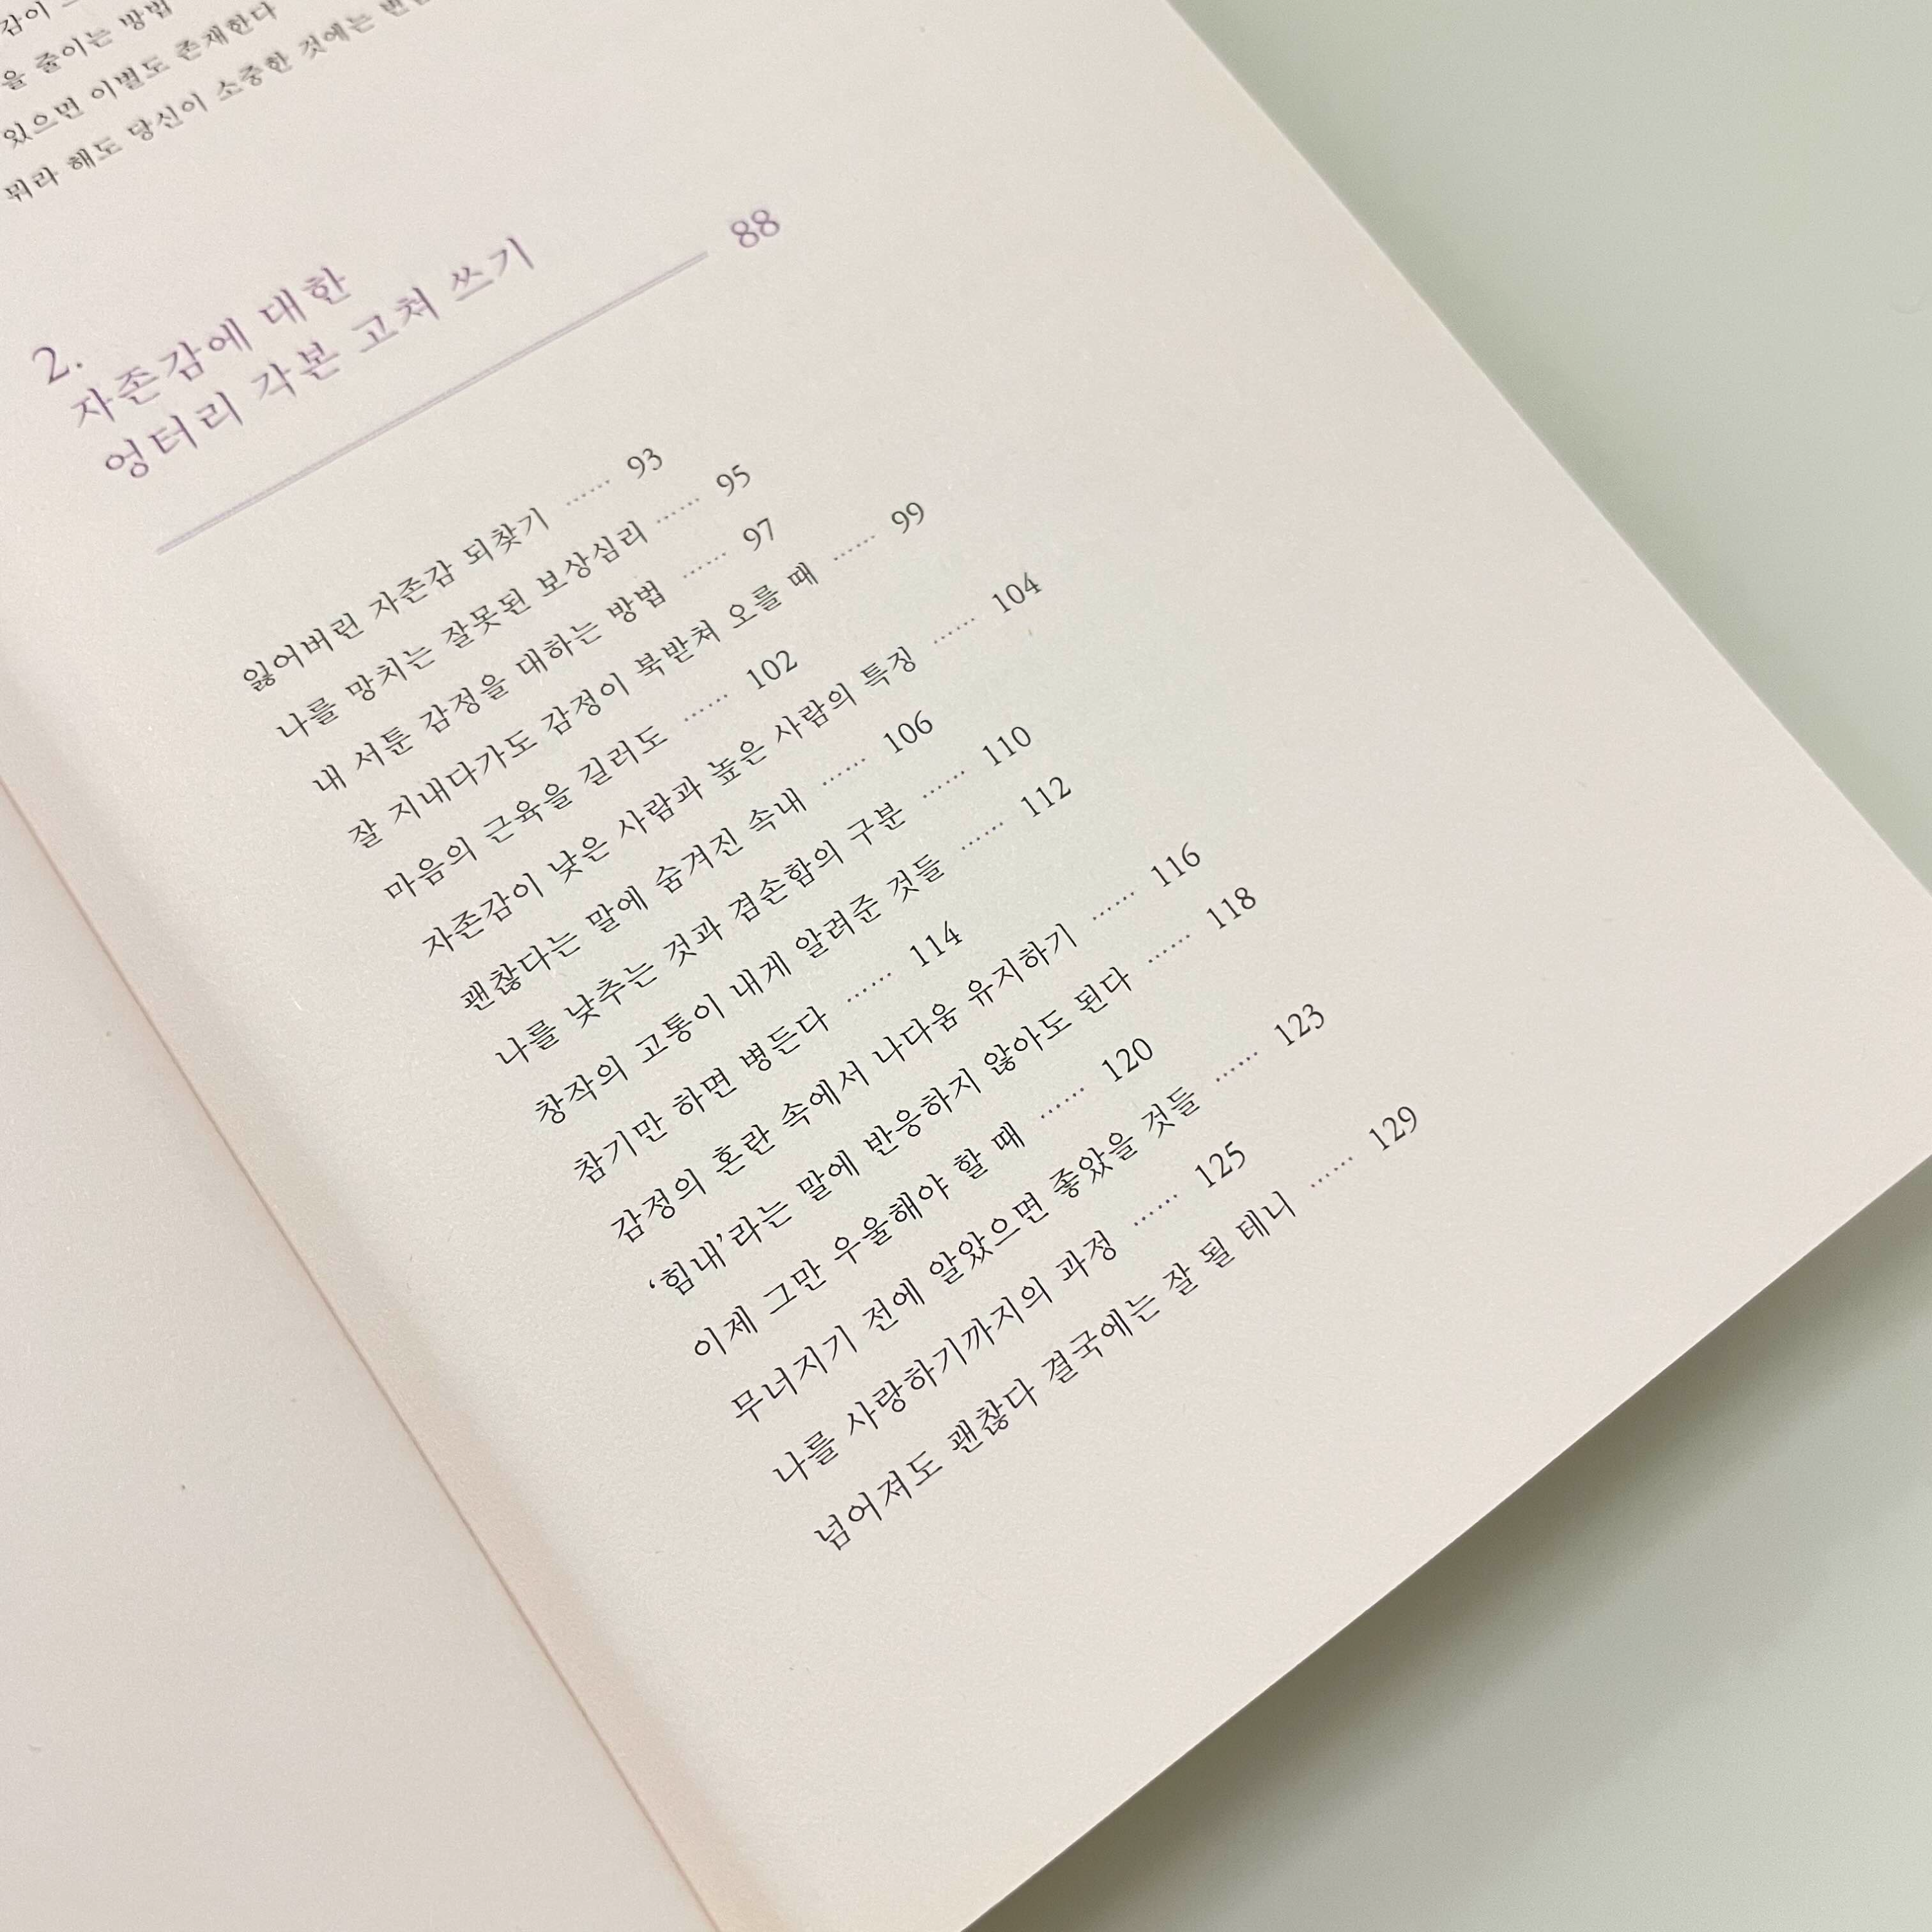 감이
을 줄이는 방법
있으면 이별도 존재한다
뭐라 해도 당신이 소중한 것에는
2.
자존감에 대한
엉터리 각본 고쳐 쓰기 88
잃어버린 자존감 되찾기 …… 93
나를 망치는 잘못된 보상심리 …… 95
내 서툰 감정을 대하는 방법 …… 97
잘 지내다가도 감정이 북받쳐 오를 때 …… 99
마음의 근육을 길러도 …… 102
자존감이 낮은 사람과 높은 사람의 특징 …… 104
괜찮다는 말에 숨겨진 속내 …… 106
나를 낮추는 것과 겸손함의 구분 …… 110
창작의 고통이 내게 알려준 것들 …… 112
참기만 하면 병든다 …… 114
감정의 혼란 속에서 나다움 유지하기 …… 116
‘힘내’라는 말에 반응하지 않아도 된다 …… 118
이제 그만 우울해야 할 때 …… 120
무너지기 전에 알았으면 좋았을 것들 …… 123
나를 사랑하기까지의 과정 …… 125
넘어져도 괜찮다 결국에는 잘 될 테니 …… 129